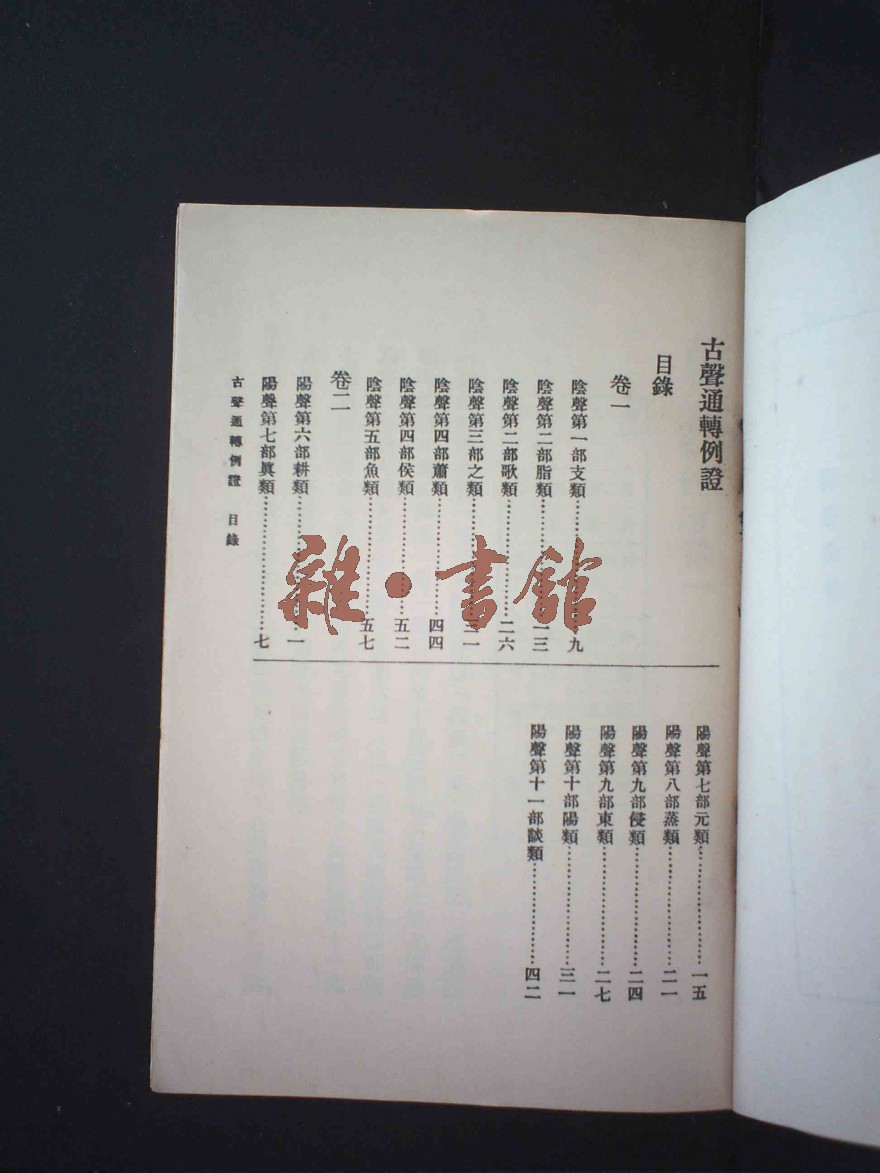 古聲通轉例證
目錄
卷一
陰聲第一部支類……九
陰聲第二部脂類……一三
陰聲第二部歌類……二六
陰聲第三部之類……三一
陰聲第四部蕭類……四四
陰聲第四部侯類……五二
陰聲第五部魚類……五七
卷二
陽聲第六部耕類……一
陽聲第七部眞類……七
陽聲第七部元類……一五
陽聲第八部蒸類……二一
陽聲第九部侵類……二四
陽聲第九部東類……二七
陽聲第十部陽類……三一
陽聲第十一部談類……四二
古聲通轉例證 目錄
雜·書館